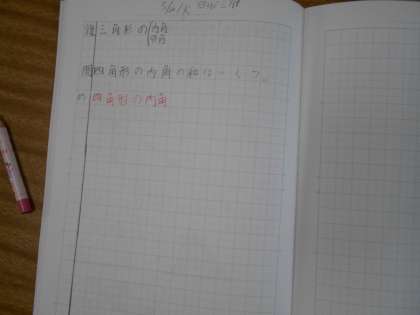 復 三角形の 内角 外角
問 四角形の内角の和はいくつ。
め 四角形の内角